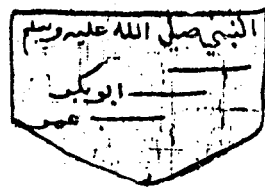 النبي صلى الله عليه وسلم
ابو بكر
عمر